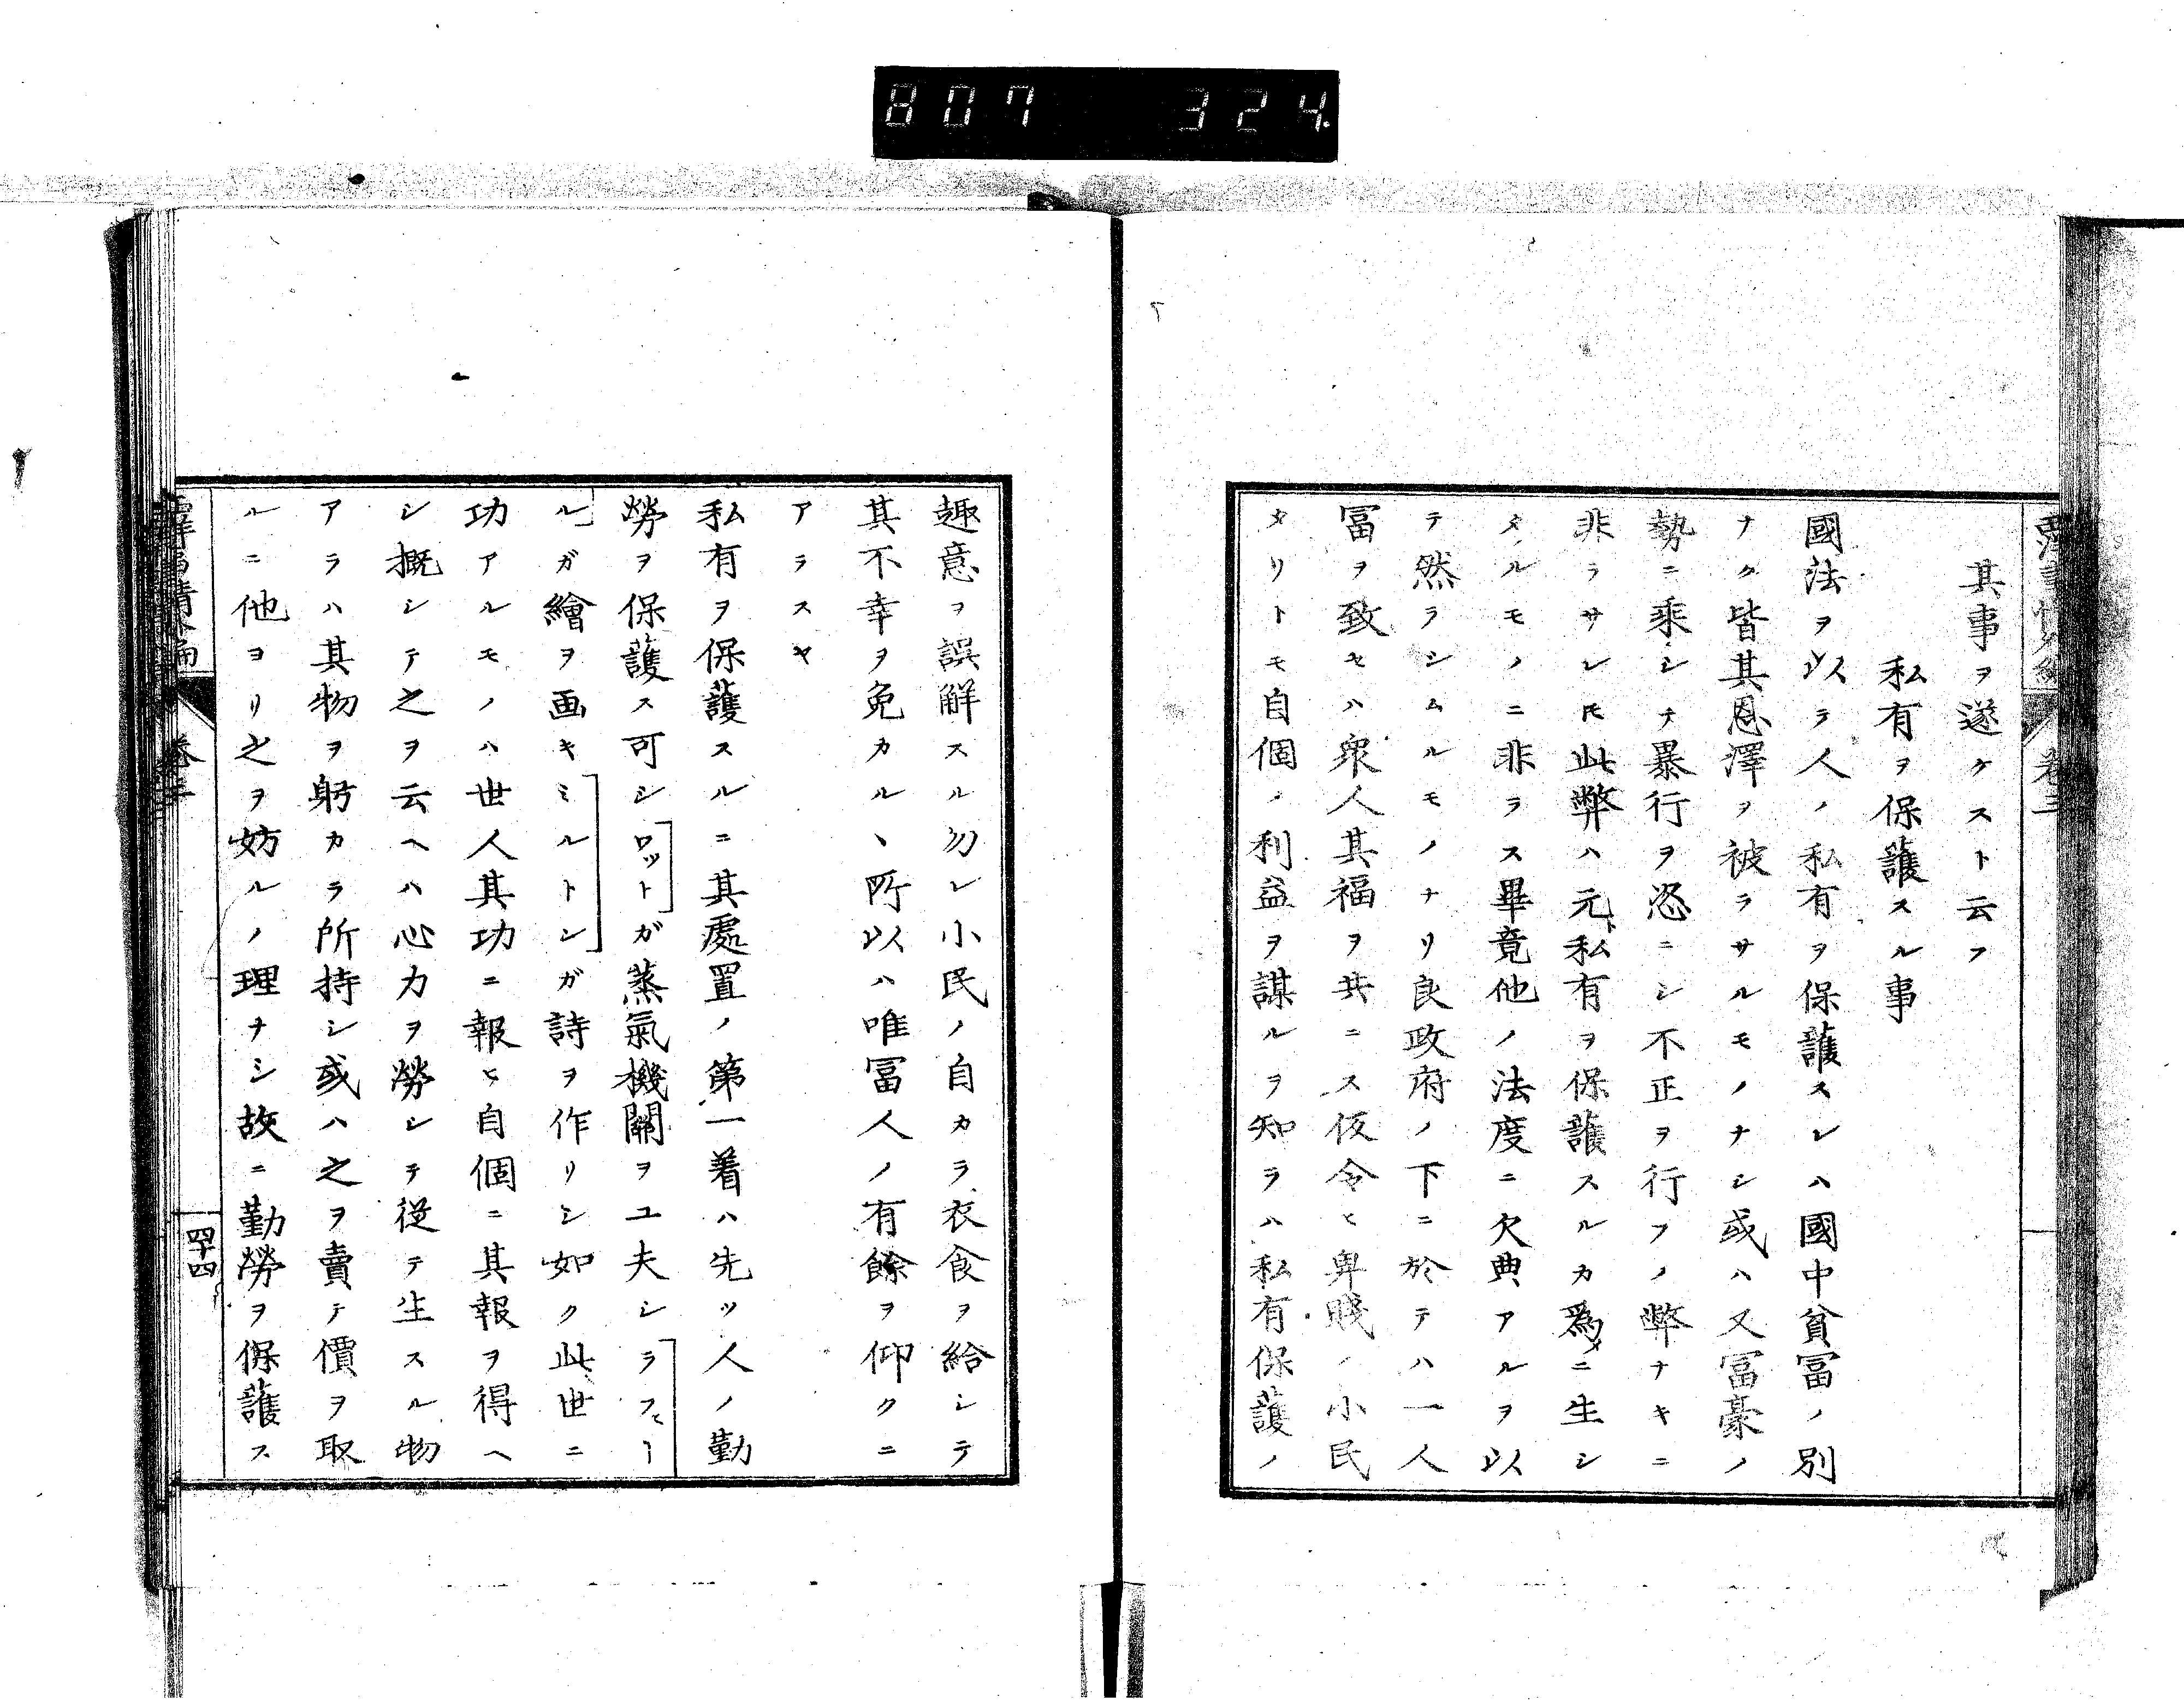 807 324
其事ヲ遂ケスト云フ
私有ヲ保護スル事
國法ヲ以ラ人ノ私有ヲ保護スレハ國中貧冨ノ別
ナク皆其恩澤ヲ被ラサルモノナシ或ハ又冨豪ノ
勢ニ乘シテ暴行ヲ恣ニシ不正ヲ行フノ弊ナキニ
非ラサレ𪜈此弊ハ元ト私有ヲ保護スルカ爲メニ生シ
タルモノニ非ラス畢竟他ノ法度ニ欠典アルヲ以
テ然ラシムルモノナリ良政府ノ下ニ於テハ一人
冨ヲ致セハ衆人其福ヲ共ニス仮令ヒ卑賤ノ小民
タリトモ自個ノ利益ヲ謀ルヲ知ラハ私有保護ノ
趣意ヲ誤解スル勿レ小民ノ自カラ衣食ヲ給シテ
其不幸ヲ免カルヽ所以ハ唯冨人ノ有餘ヲ仰クニ
アラスヤ
私有ヲ保護スルニ其處置ノ第一着ハ先ツ人ノ勤
勞ヲ保護ス可シロットガ蒸氣機關ヲ工夫シラフヒー
ルガ繪ヲ画キミルトンガ詩ヲ作リシ如ク此世ニ
功アルモノハ世人其功ニ報ヒ自個ニ其報ヲ得ヘ
シ概シテ之ヲ云ヘハ心力ヲ勞シテ從テ生スル物
アラハ其物ヲ躬カラ所持シ或ハ之ヲ賣テ價ヲ取
ルニ他ヨリ之ヲ妨ルノ理ナシ故ニ勤勞ヲ保護ス
卷三
四十四